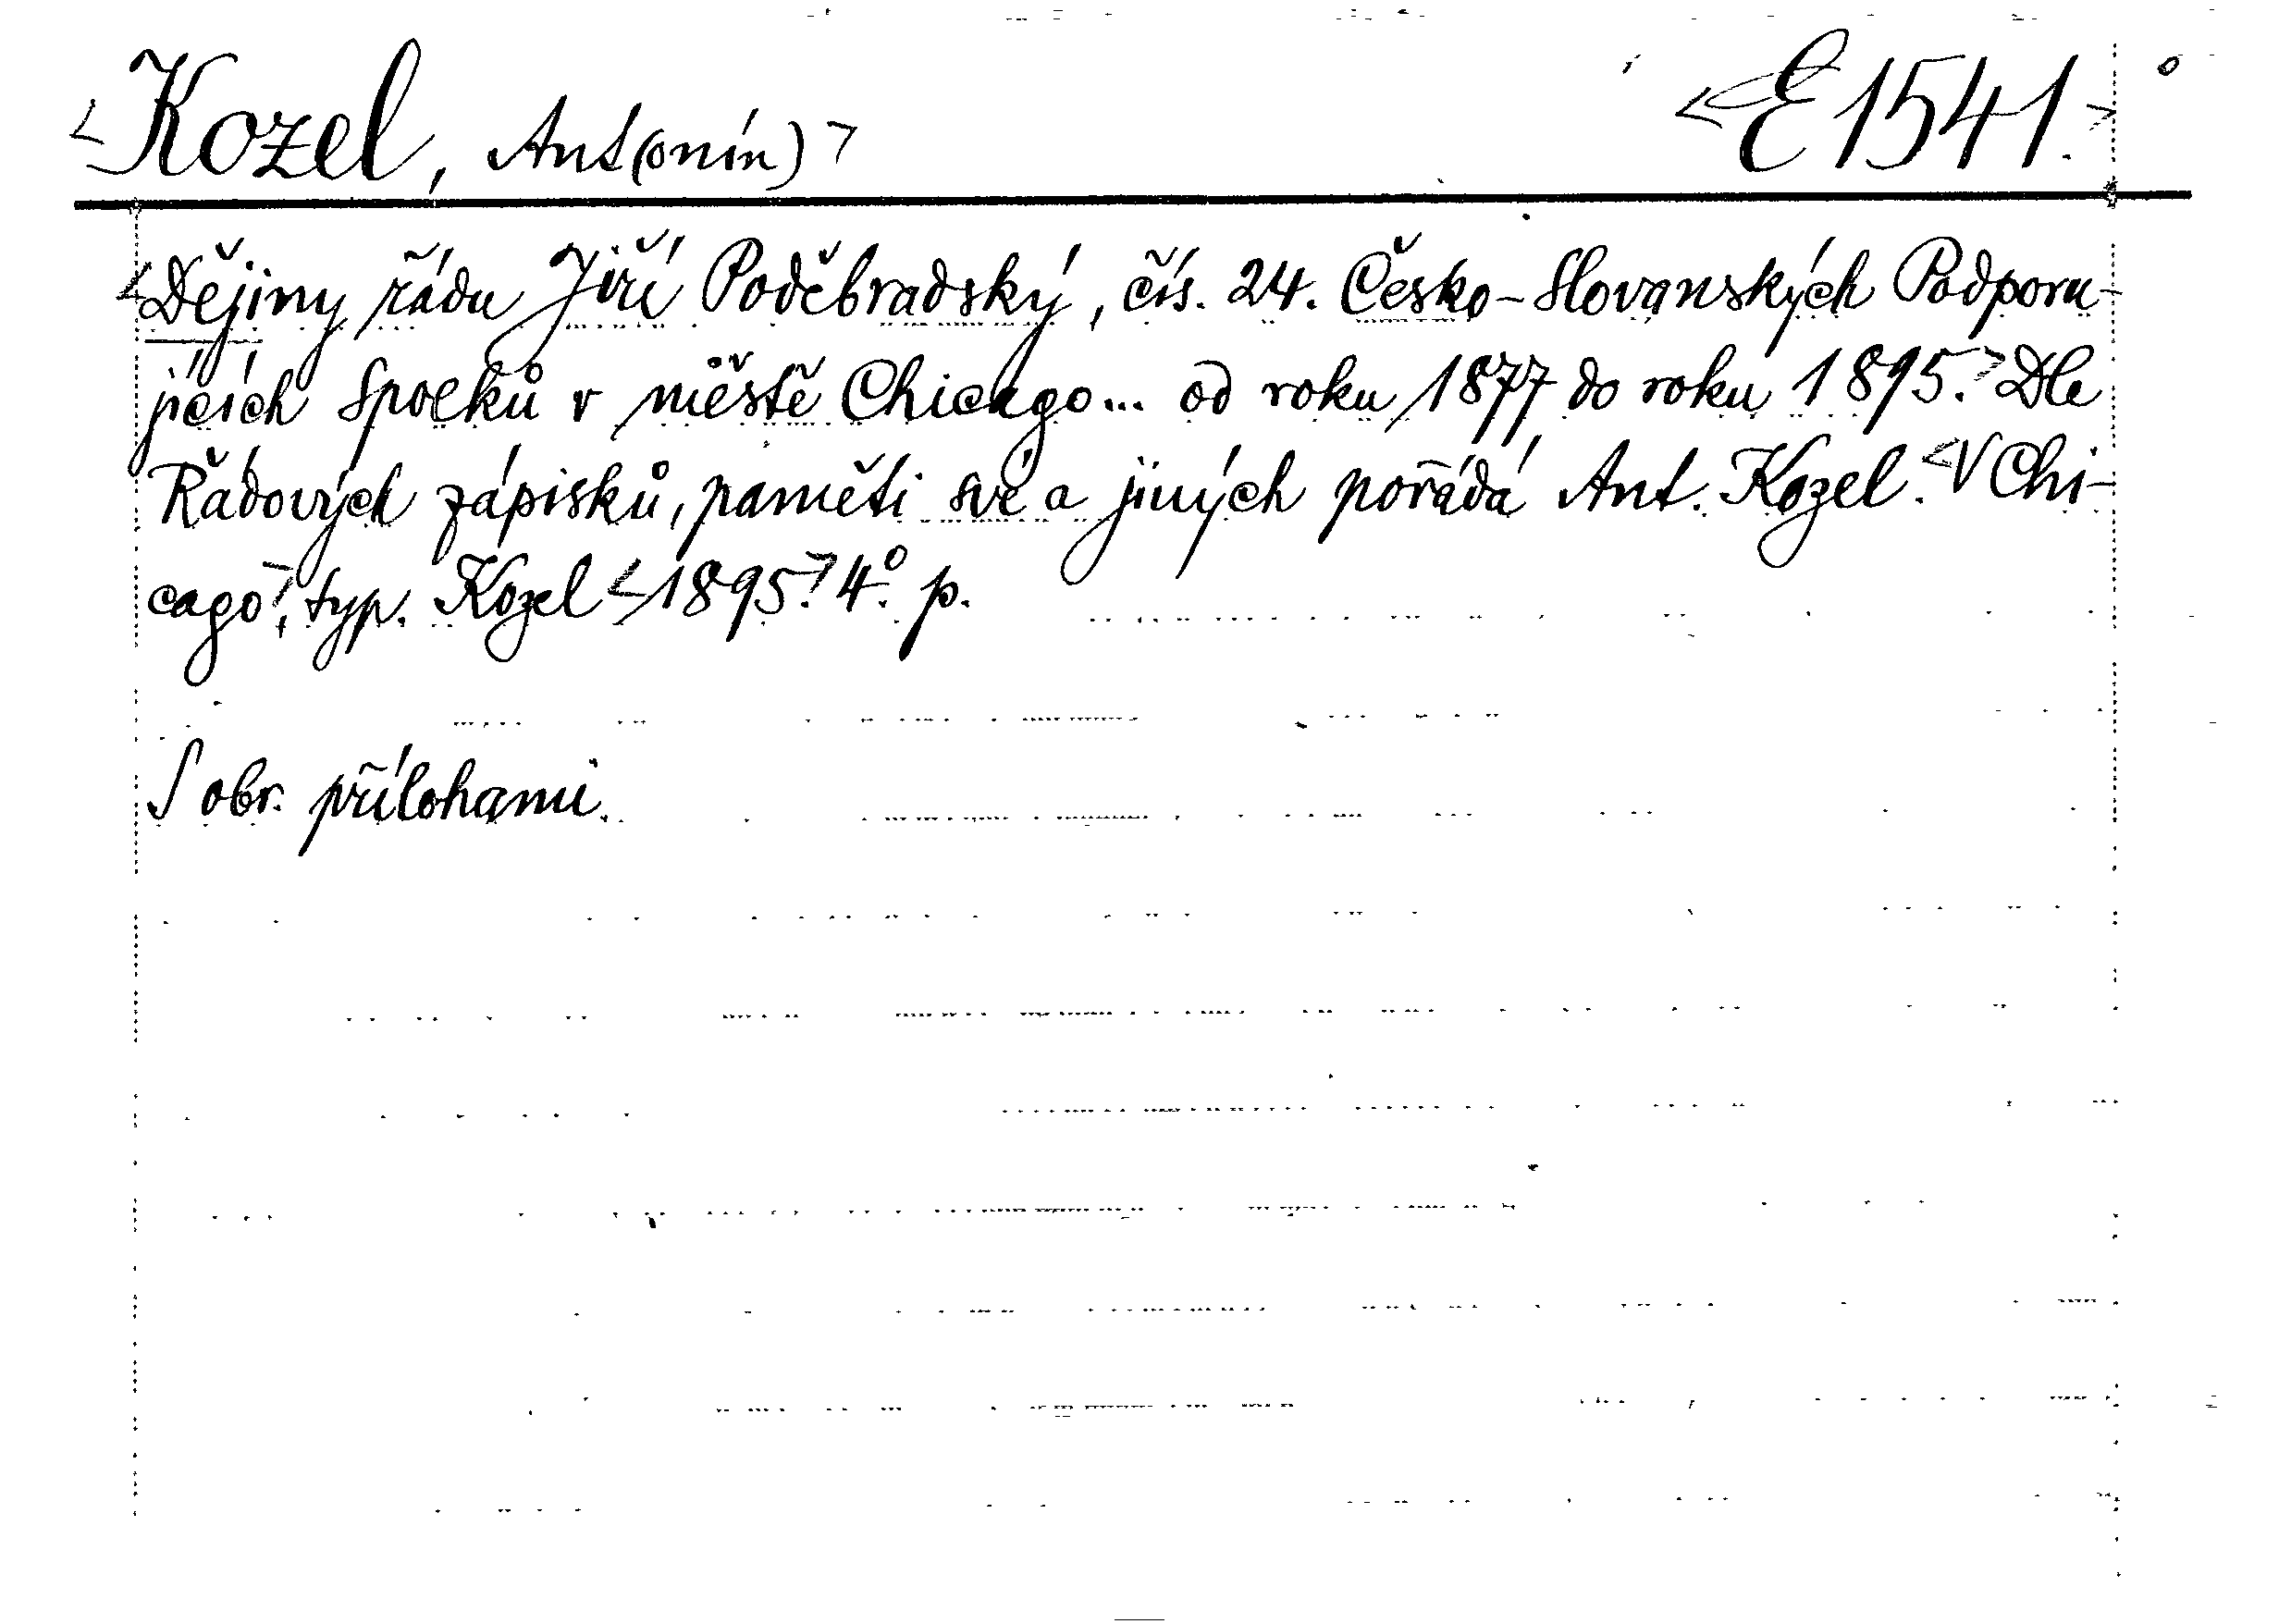 <Kozel, Ant(onín)> <E 1541.>
<Dějiny řádu Jiří Poděbradský, čís. 24. Česko-Slovanských Podporu-
jících Spolků v městě Chicago... od roku 1877 do roku 1895.> Dle
Řádových zápisků, paměti své a jiných pořádá Ant. Kozel. <V Chi-
cago>, typ. Kozel <1895.> 4° p.
S obr. přílohami.